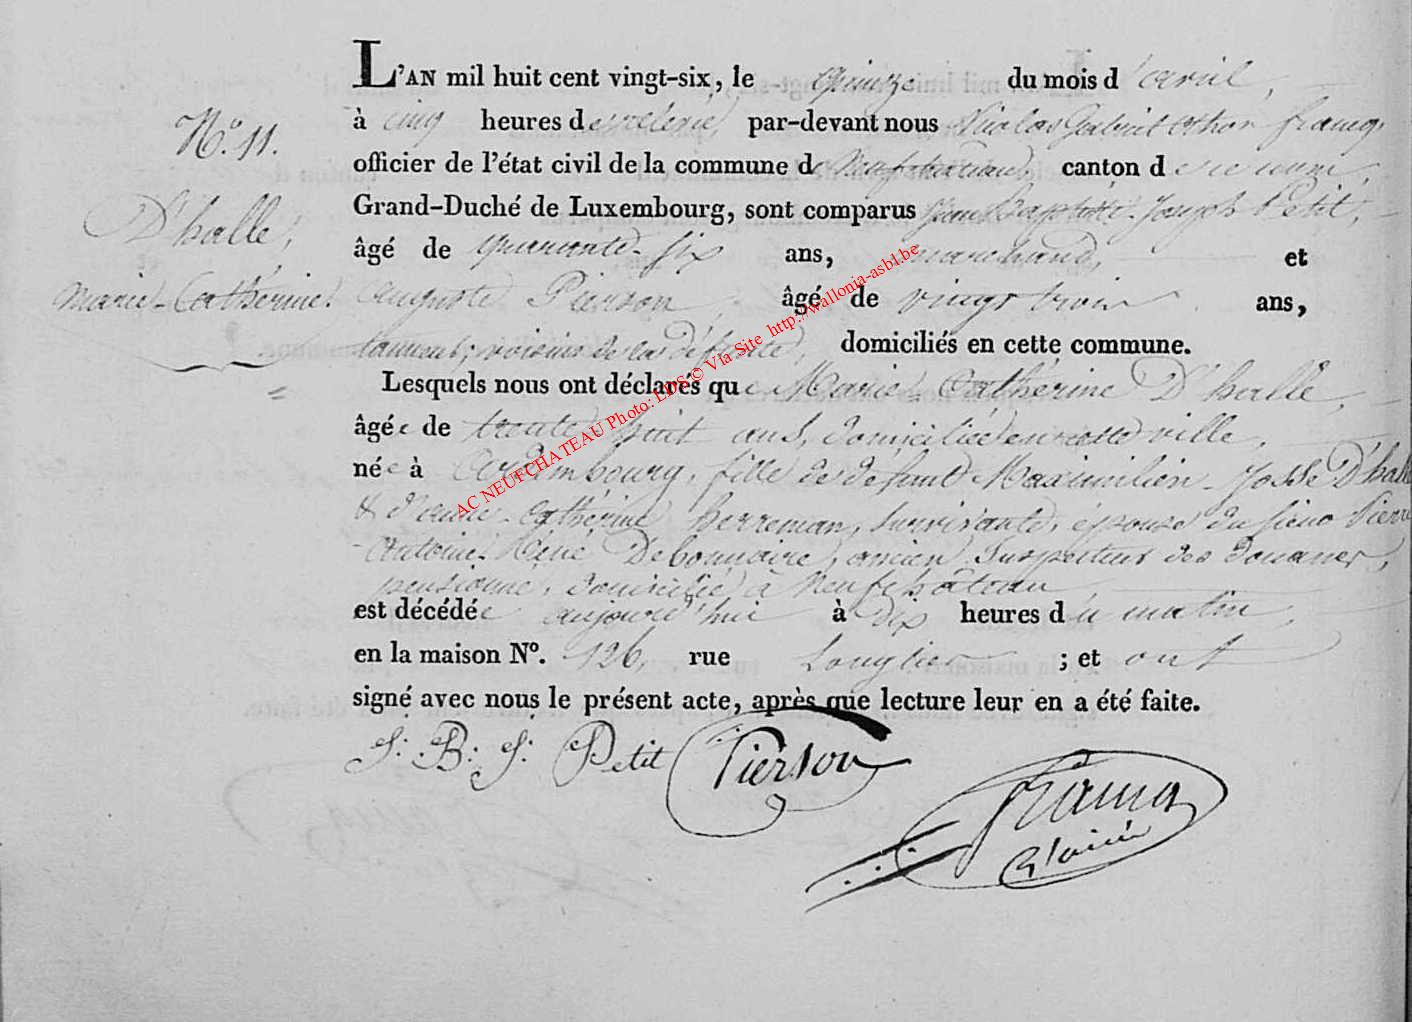 L'AN mil huit cent vingt-six, le quinze du mois d'avril,
N.º 11.
à cinq heures de relevée, par-devant nous Nicolas Gabriel Othon Francq,
officier de l'état civil de la commune de Neufchateau canton de
D'hallé,
Grand-Duché de Luxembourg, sont comparus Jean Baptiste Joseph Petit,
âgé de quarante-six ans, marchand, et
Marie-Cathérine.
Auguste Pierson, âgé de vingt trois ans,
tanneur, voisins de la défunte, domiciliés en cette commune.
Lesquels nous ont déclarés que Marie Cathérine D'hallé,
âgée de trente huit ans, domiciliée en cette ville,
née à fille de defunt Maximilien-Josse D'hallé
& d'anne-Cathérine herreman, survivante, épouse du sieur Pierre
Antoine-Réné Debonnaire, ancien Inspecteur des Douanes,
pensionné, domicilié à Neufchâteau
est décédée aujourd'hui à dix heures du matin,
en la maison Nº. 126, rue Longlier ; et ont
signé avec nous le présent acte, après que lecture leur en a été faite.
J. B. J. Petit Pierson
Francq
l'ainé
AC NEUFCHATEAU Photo: LDS © Via Site http://wallonia-asbl.be